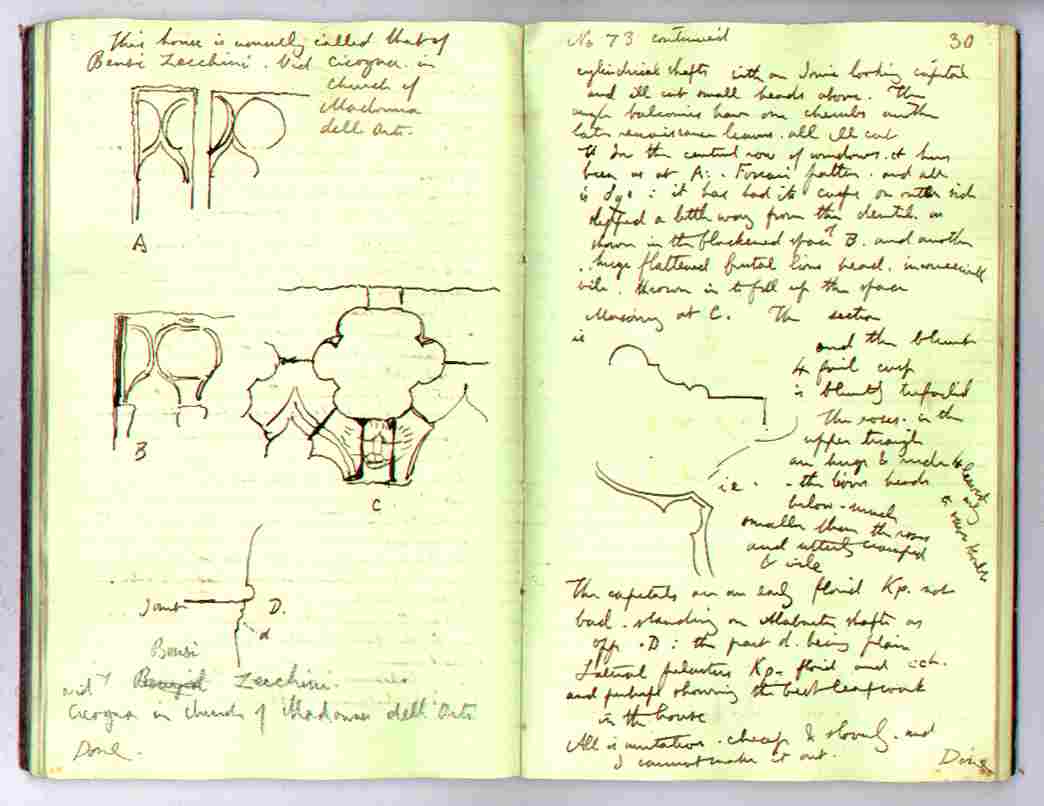 This house is usually called that of
Bensi Zecchini. Vid Cicogna. in
church of
Madonna
dell Orto.
A
B
C
Joint
D.
d
Bensi
vid Zecchini.
Cicogna in church of Madonna dell Orto
Done.
No 73 continued
30
cylindrical shafts with an Ionic looking capital
and ill cut small heads above. The
angle balconies have one cherubs another
late renaissance leaves. all ill cut
In the central row of windows. it has
been as at A: Foscari pattern. and all
is : it has had its cusps on outer side
clipped a little way from the dentil. as
shown in the blackened space of B. and another
huge flattened brutal lions head. inconceivably
vile. thrown in to fill up the space
Masonry at C. The section
is
and the blunt
4 foil cusp
is bluntly trefoiled
The roses. in the
upper
are huge &
i.e. the lions heads
below. much
smaller than the roses
and utterly cramped
& vile
The capitals are an early florid Kp. not
bad. standing on Alabaster shafts as
opp. D: the part d. being plain
Lateral pilasters Kp. florid and rich.
and perhaps showing the best leafwork
in the house
All is imitation. cheap & slovenly. and
I cannot make it out.
Done